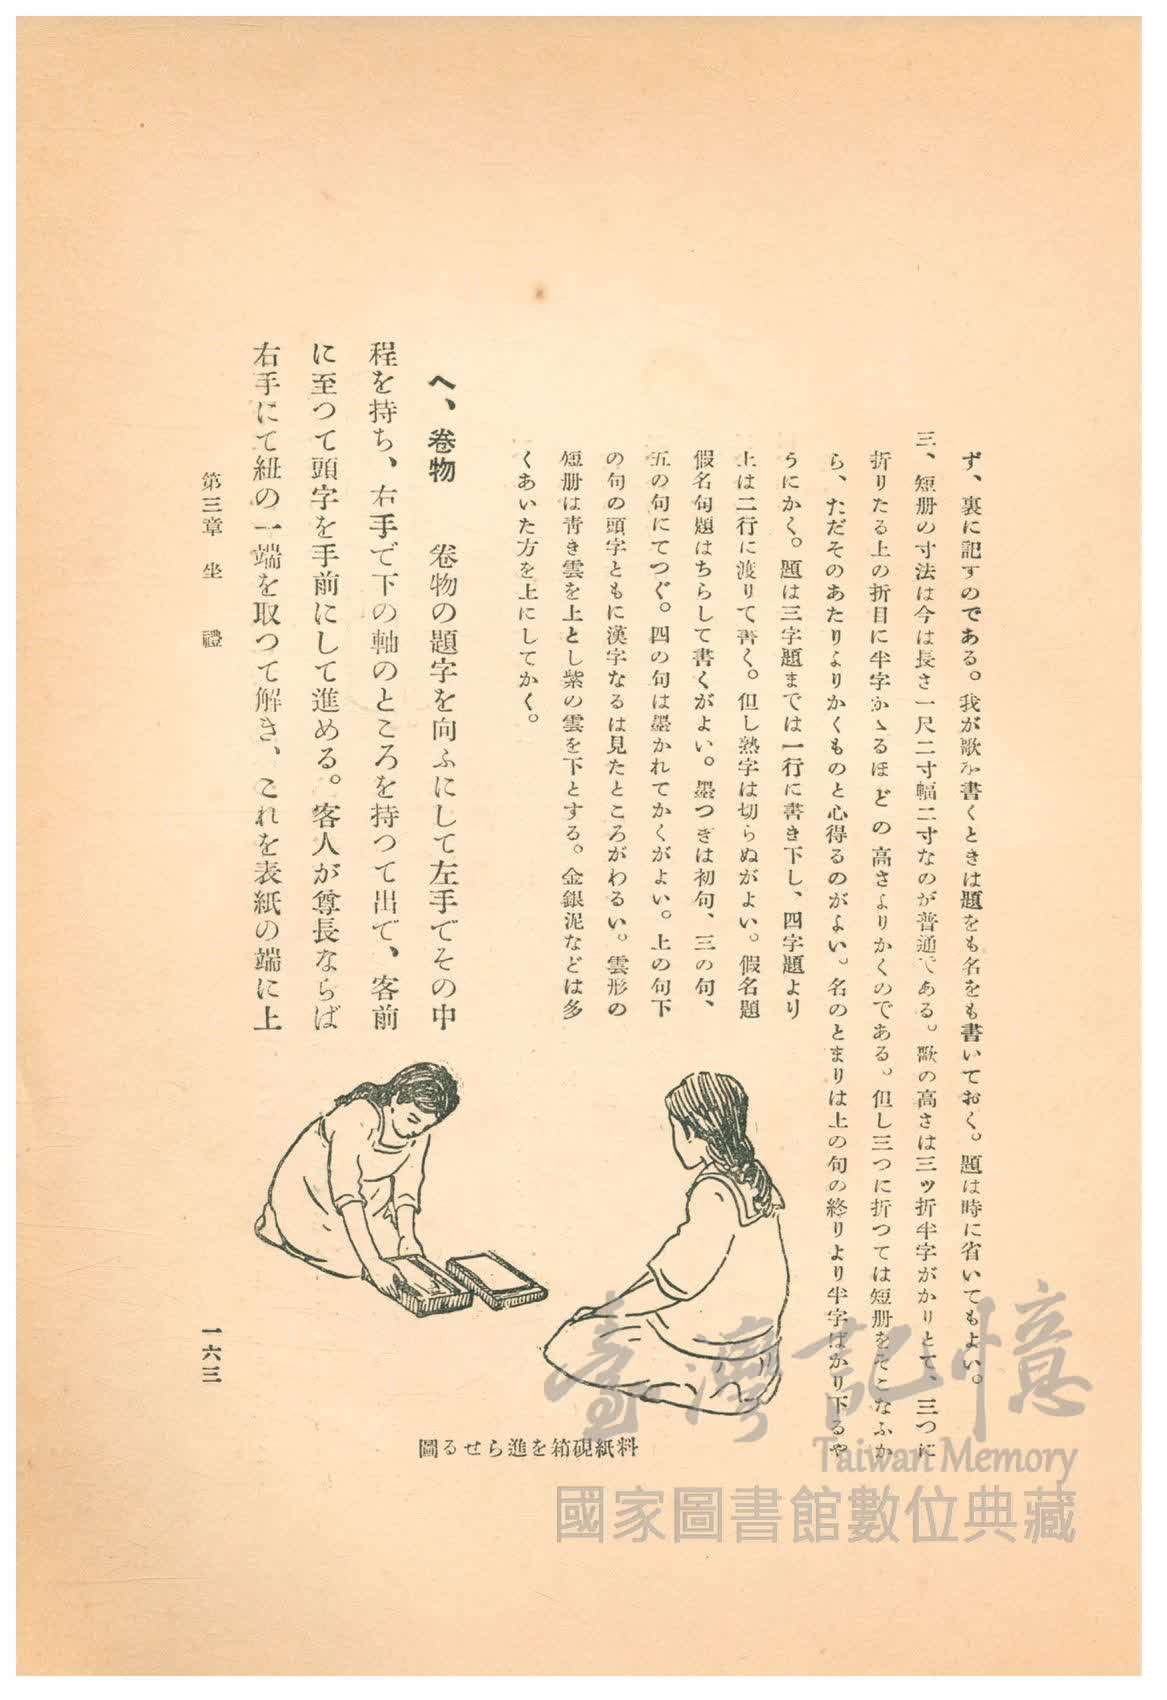 ず、裏に記すのである。我が歌を書くときは題をも名をも書いておく。題は時に省いてもよい。
三、短册の寸法は今は長さ一尺二寸幅二寸なのが普通である。歌の高さは三ッ折半字がかりとて、三つに
折りたる上の折目に半字かゝるほどの高さよりかくのである。但し三つに折つては短册をそこなふか
ら、ただそのあたりよりかくものと心得るのがよい。名のとまりは上の句の終りより半字ばかり下るや
うにかく。題は三字題までは一行に書き下し、四字題より
上は二行に渡りて書く。但し熟字は切らぬがよい。假名題
假名句題はちらして書くがよい。墨つぎは初句、三の句、
五の句にてつぐ。四の句は墨かれてかくがよい。上の句下
の句の頭字ともに漢字なるは見たところがわるい。雲形の
短册は青き雲を上とし紫の雲を下とする。金銀泥などは多
くあいた方を上にしてかく。
へ、卷物　卷物の題字を向ふにして左手でその中
程を持ち、右手で下の軸のところを持つて出で、客前
に至つて頭字を手前にして進める。客人が尊長ならば
右手にて紐の一端を取つて解き、これを表紙の端に上
圖るせら進を箱硯紙料
第三章　坐禮
一六三
臺灣記憶
Taiwan Memory
國家圖書館數位典藏